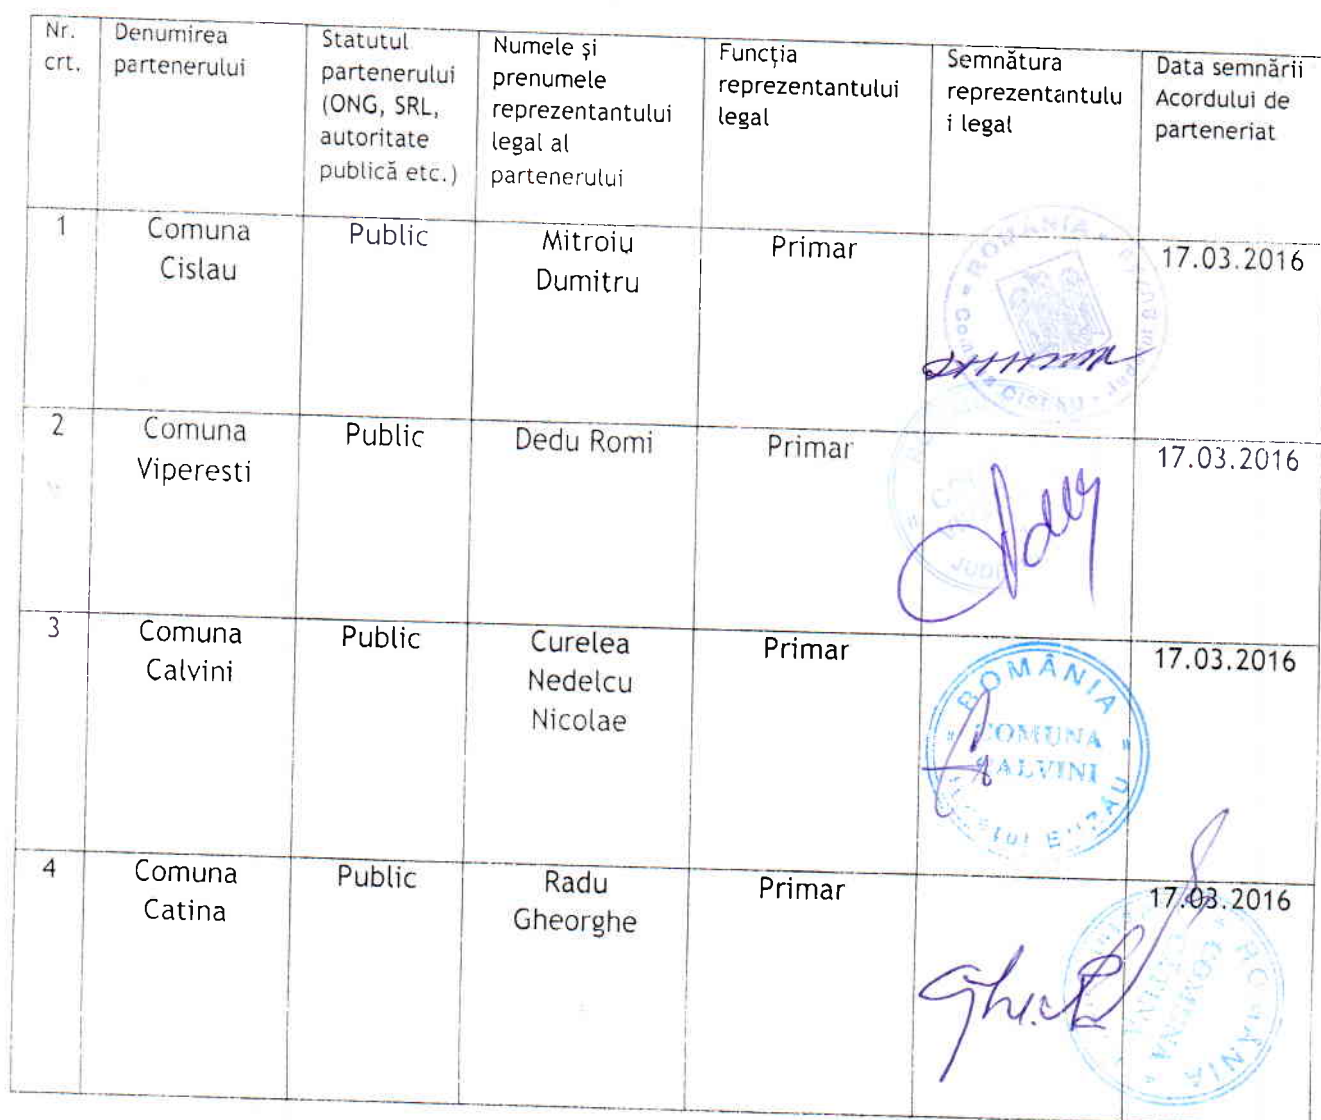 Nr.
crt.
Denumirea
partenerului
Statutul
partenerului
(ONG, SRL,
autoritate
publică etc.)
Numele și
prenumele
reprezentantului
legal al
partenerului
Funcția
reprezentantului
legal
Semnătura
reprezentantulu
i legal
Data semnării
Acordului de
parteneriat
1
Comuna
Cislau
Public
Mitroiu
Dumitru
Primar
ROMÂNIA
17.03.2016
2
Comuna
Viperesti
Public
Dedu Romi
Primar
17.03.2016
3
Comuna
Calvini
Public
Curelea
Nedelcu
Nicolae
Primar
ROMÂNIA
COMUNA
CALVINI
17.03.2016
4
Comuna
Catina
Public
Radu
Gheorghe
Primar
17.03.2016
ROMÂNIA
COMUNA